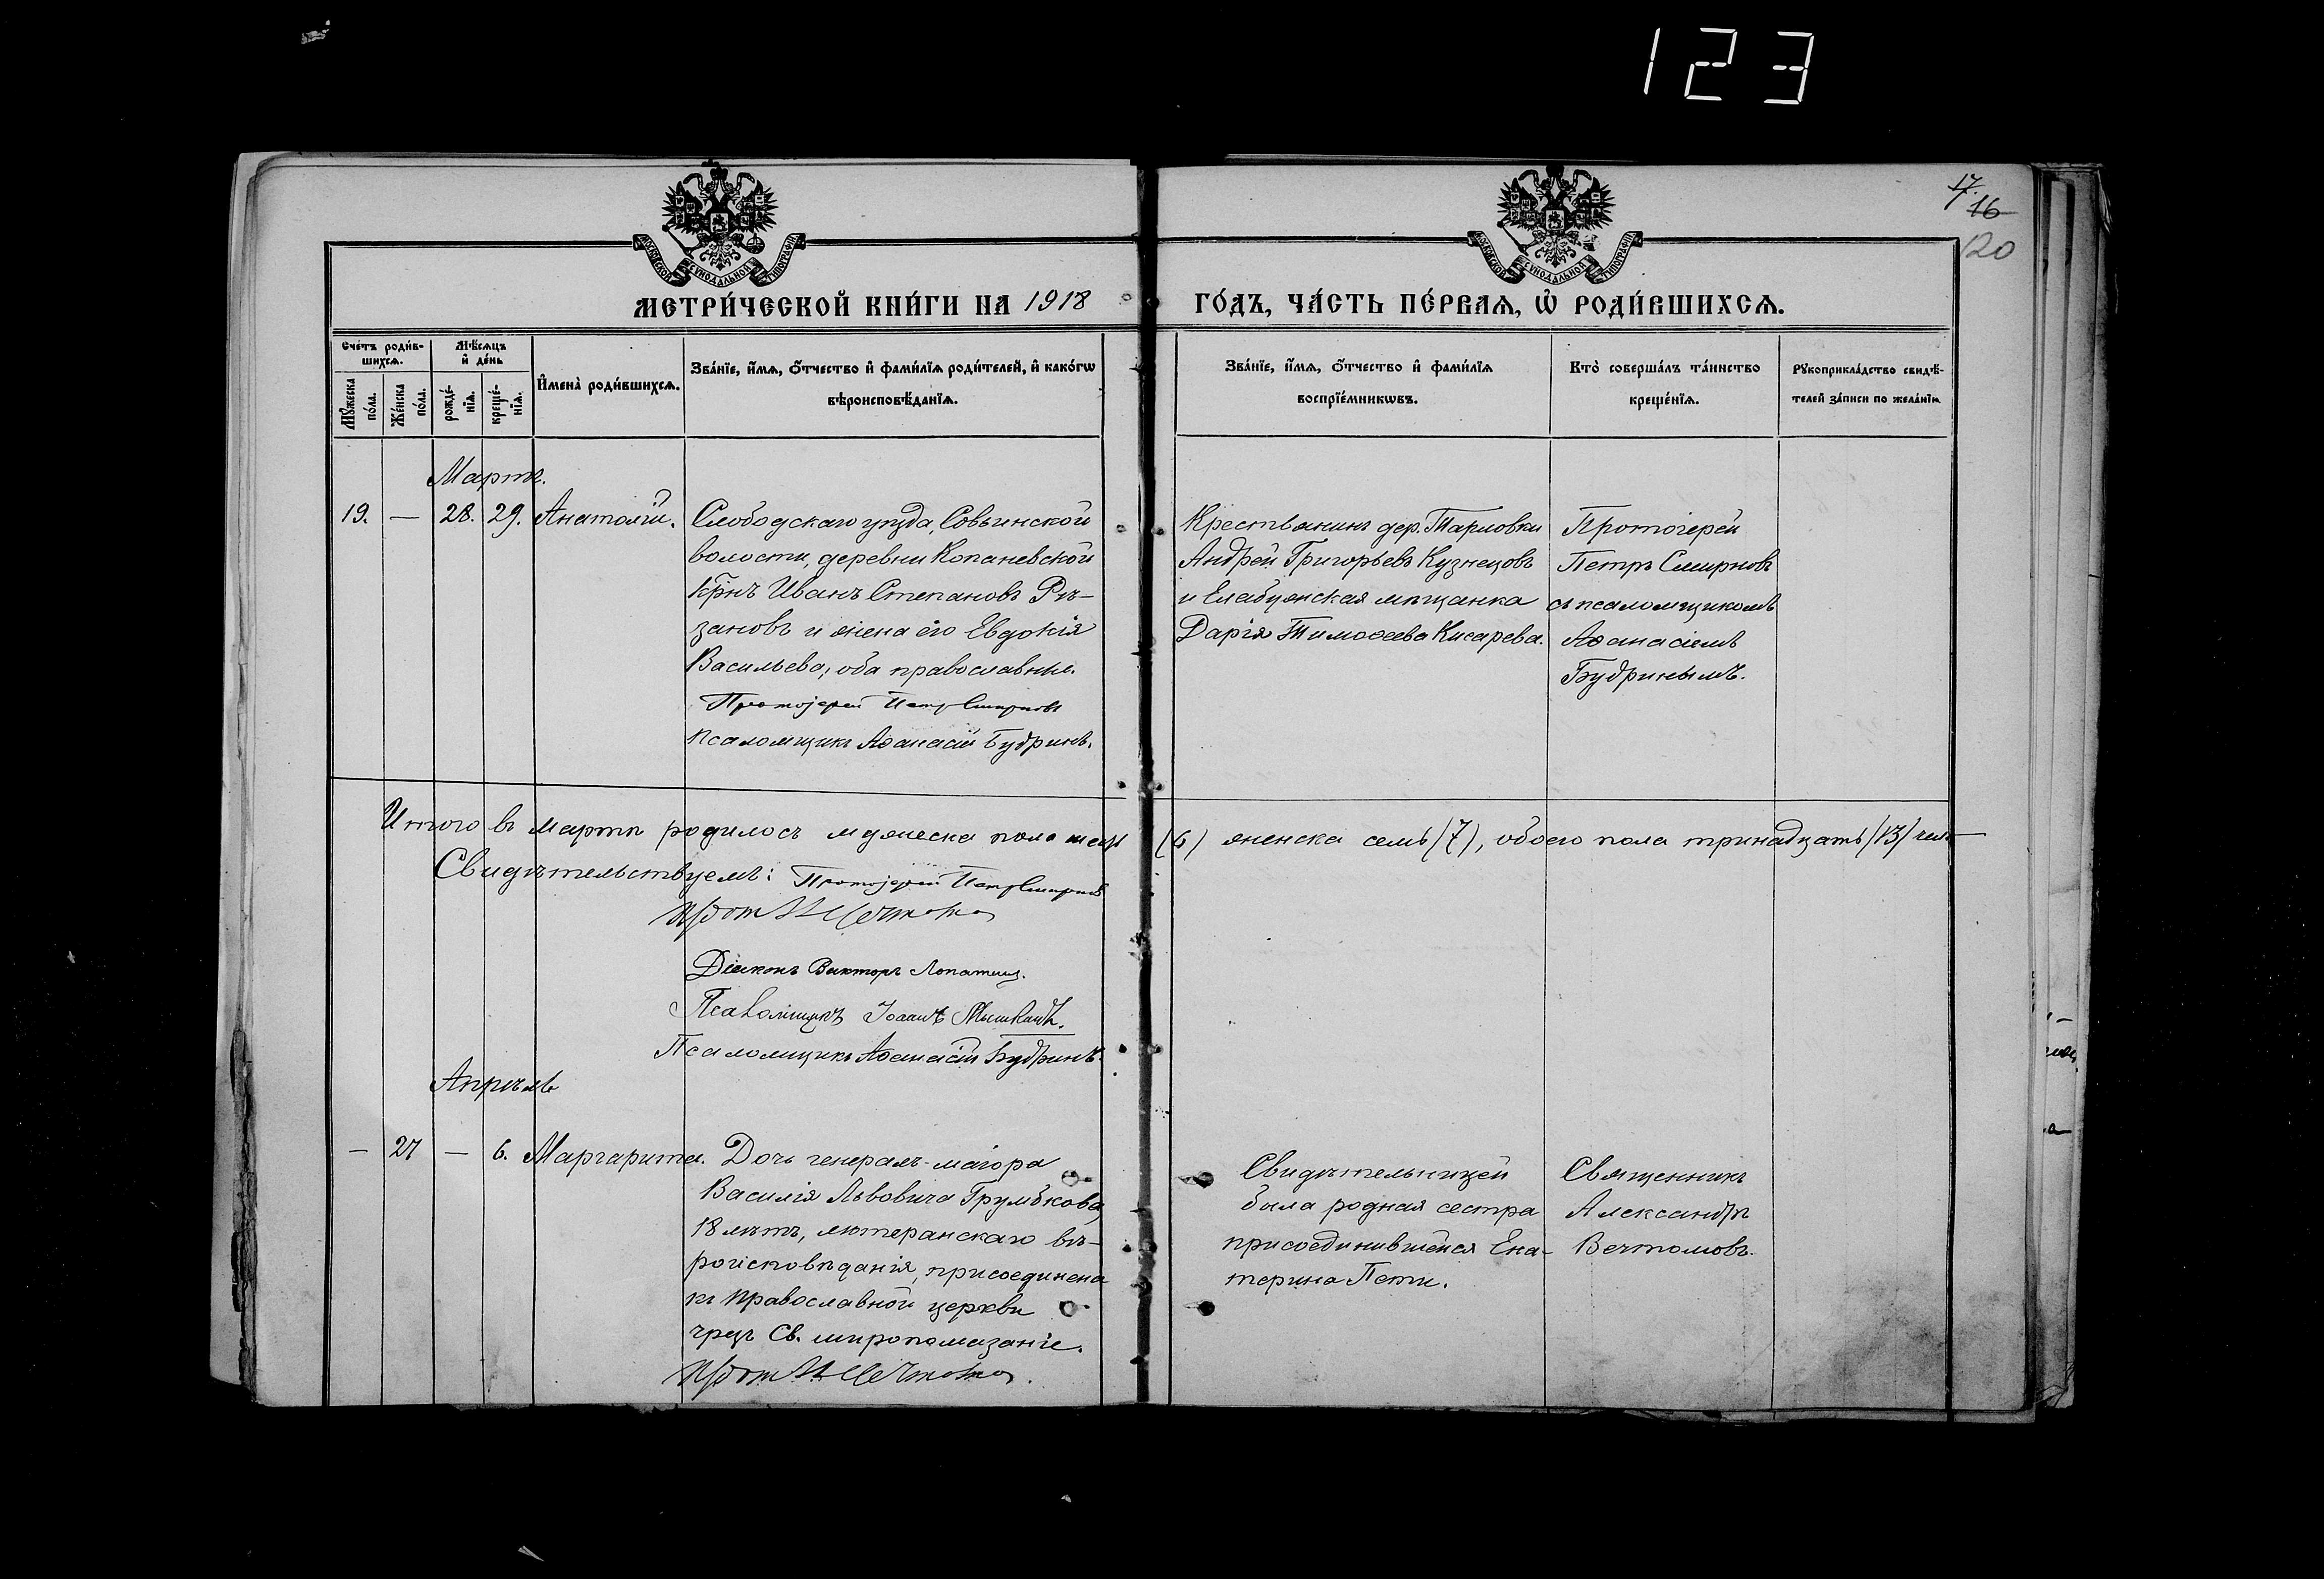 123
17.
16
120
МОСКОВСКОЙ СѴНОДАЛЬНОЙ ТИПОГРАФІИ
МОСКОВСКОЙ СѴНОДАЛЬНОЙ ТИПОГРАФІИ
МЕТРИ́ЧЕСКОЙ КНИ́ГИ НА 1918 ГО́ДЪ, ЧА́СТЬ ПЕ́РВАѦ, Ѡ РОДИ́ВШИХСѦ.
Сче́тъ роди́в-
шихсѧ.
Мꙋ́жеска по́ла.
Же́нска по́ла.
Мѣ́сѧцъ
и҆ де́нь
рожде́-
нїѧ.
креще́-
нїѧ.
И҆мена̀ роди́вшихсѧ.
Зва́нїе, и҆́мѧ, ѻ҆́тчество и҆ фами́лїѧ роди́телей, и҆ како́гѡ
вѣроисповѣ́данїѧ.
Зва́нїе, и҆́мѧ, ѻ҆́тчество и҆ фами́лїѧ
воспрїе́мникѡвъ.
Кто̀ соверша́лъ та́инство
креще́нїѧ.
Рꙋкоприкла́дство свидѣ́-
телей за́писи по жела́нїю.
Мартъ.
19. — 28. 29. Анатолій.
Слободскаго уѣзда, Совьинской
волости, деревни Копаневской
Кр̃нъ Иванъ Степановъ Рѣ-
зановъ и жена его Евдокія
Васильева, оба православные.
Протоіерей Петр Смирновъ
Псаломщикъ Аѳанасій Будринъ.
Крестьянинъ дер. Тарловки
Андрей Григорьевъ Кузнецовъ
и Елабужская мѣщанка
Дарія Тимоѳеева Кисарева.
Протоіерей
Петръ Смирновъ
съ псаломщикомъ
Аѳанасіемъ
Будринымъ.
Итого въ мартѣ родилось мужеска пола шесть (6) женска семь (7), обоего пола тринадцать (13) чел.
Свидѣтельствуемъ: Протоіерей Петр Смирновъ
Діаконъ Викторъ Лопатинъ.
Псаломщикъ Іоаннъ Мышкинъ.
Псаломщикъ Аѳанасій Будринъ.
Апрѣль
— 27 — 6. Маргарита.
Дочь генералъ-маіора
Василія Львовича Грумбкова,
18 лѣтъ, лютеранскаго вѣ-
роисповѣданія, присоединена
къ Православной церкви
чрезъ Св. миропомазаніе.
Свидѣтельницей
была родная сестра
присоединившейся Ека-
терина Пети.
Священникъ
Александръ
Вечтомовъ.